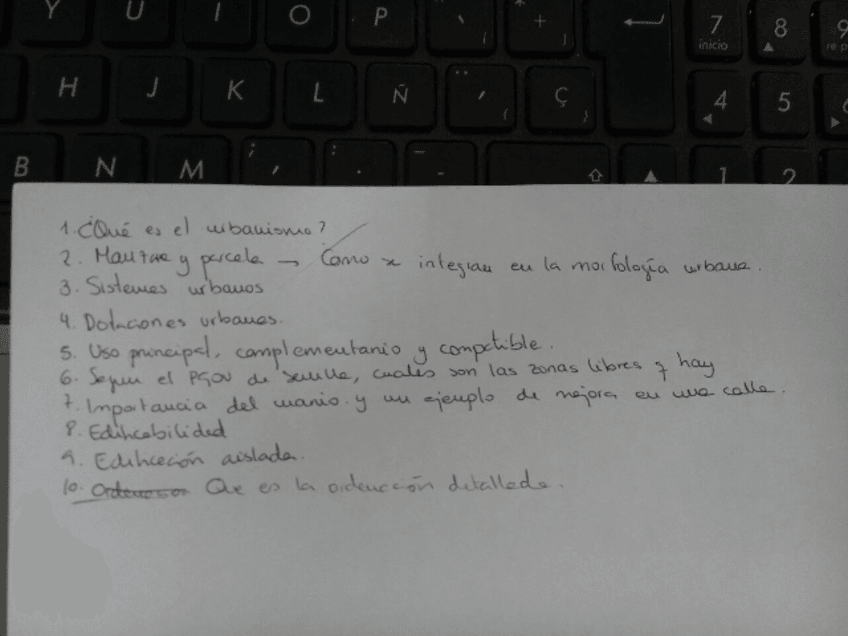 Y U I O P ` ^ + 7 inicio 8 9 re p
H J K L Ñ ¨ ´ { Ç } 4 5 6
B N M ; , : . _ - 1 2
1. ¿Qué es el urbanismo?
2. Manzana y parcela → Como se integran en la morfología urbana.
3. Sistemas urbanos
4. Dotaciones urbanas.
5. Uso principal, complementario y compatible.
6. Según el PGOU de Sevilla, cuales son las zonas libres q hay
7. Importancia del y un ejemplo de mejora en una calle.
8. Edificabilidad
9. Edificación aislada.
10. Que es la ordenación detallada.